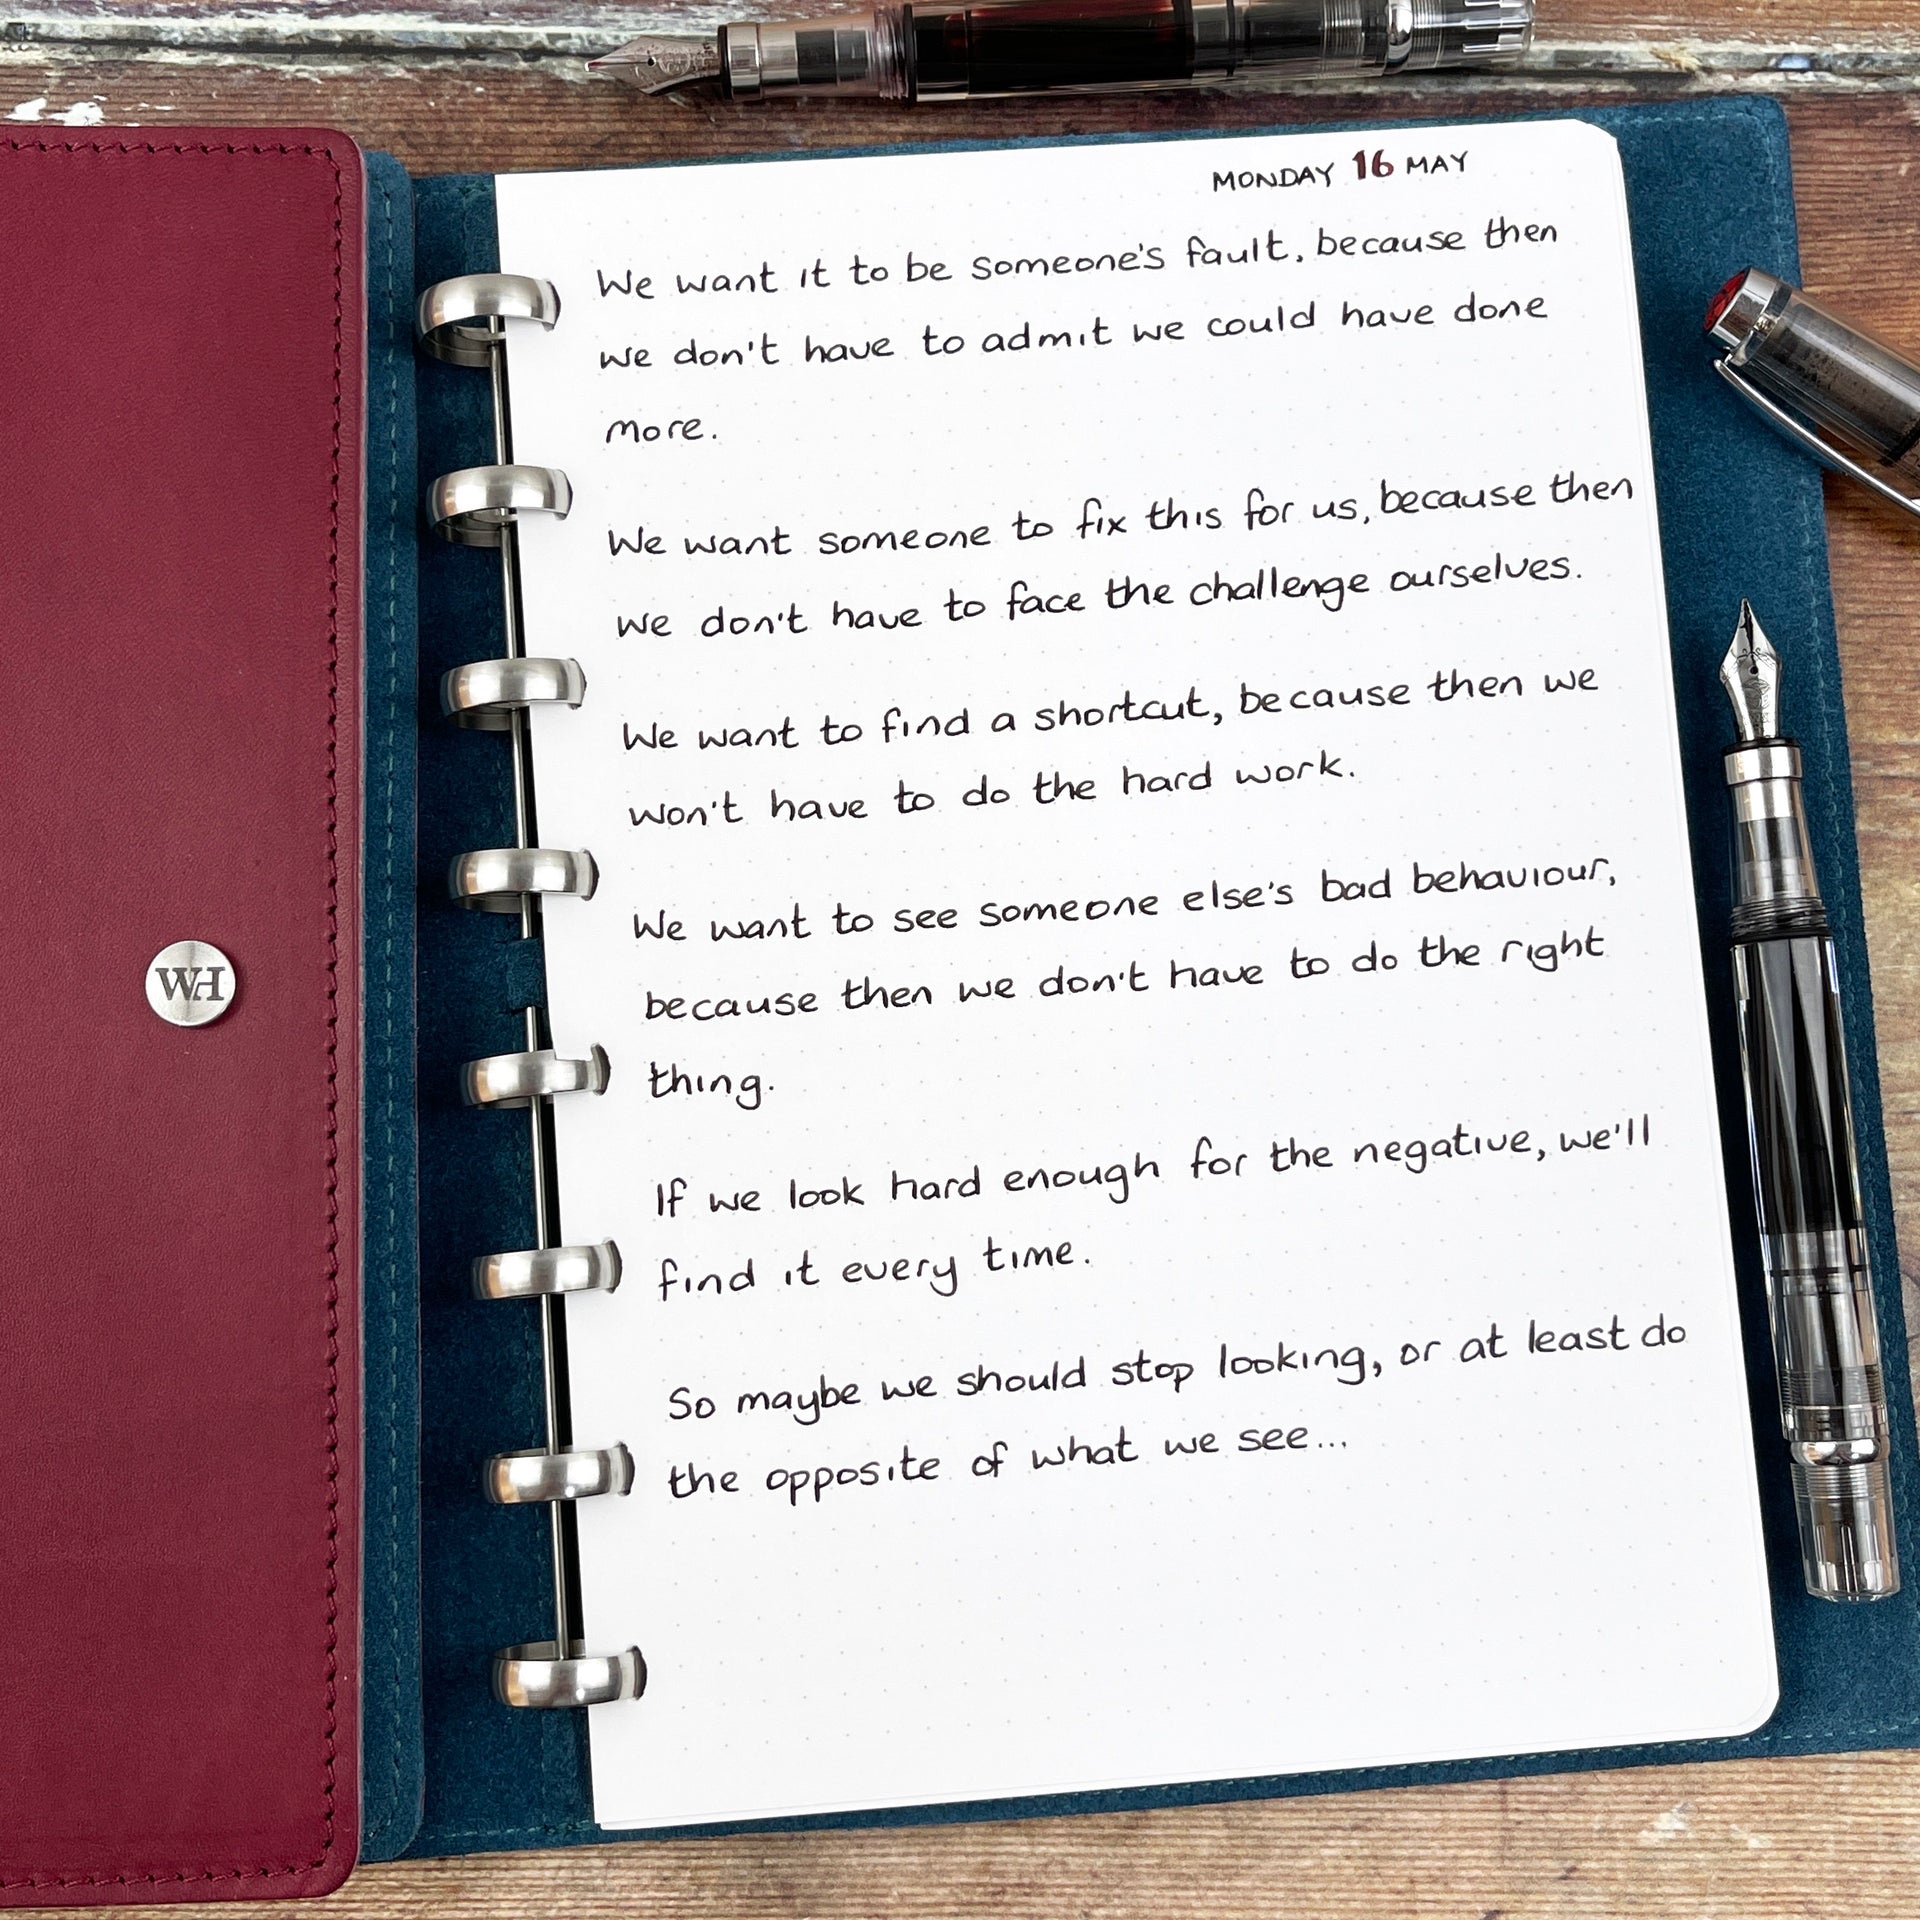 MONDAY 16 MAY
We want it to be someone's fault, because then
we don't have to admit we could have done
more.
We want someone to fix this for us, because then
we don't have to face the challenge ourselves.
We want to find a shortcut, because then we
won't have to do the hard work.
We want to see someone else's bad behaviour,
because then we don't have to do the right
thing.
If we look hard enough for the negative, we'll
find it every time.
So maybe we should stop looking, or at least do
the opposite of what we see...
WH